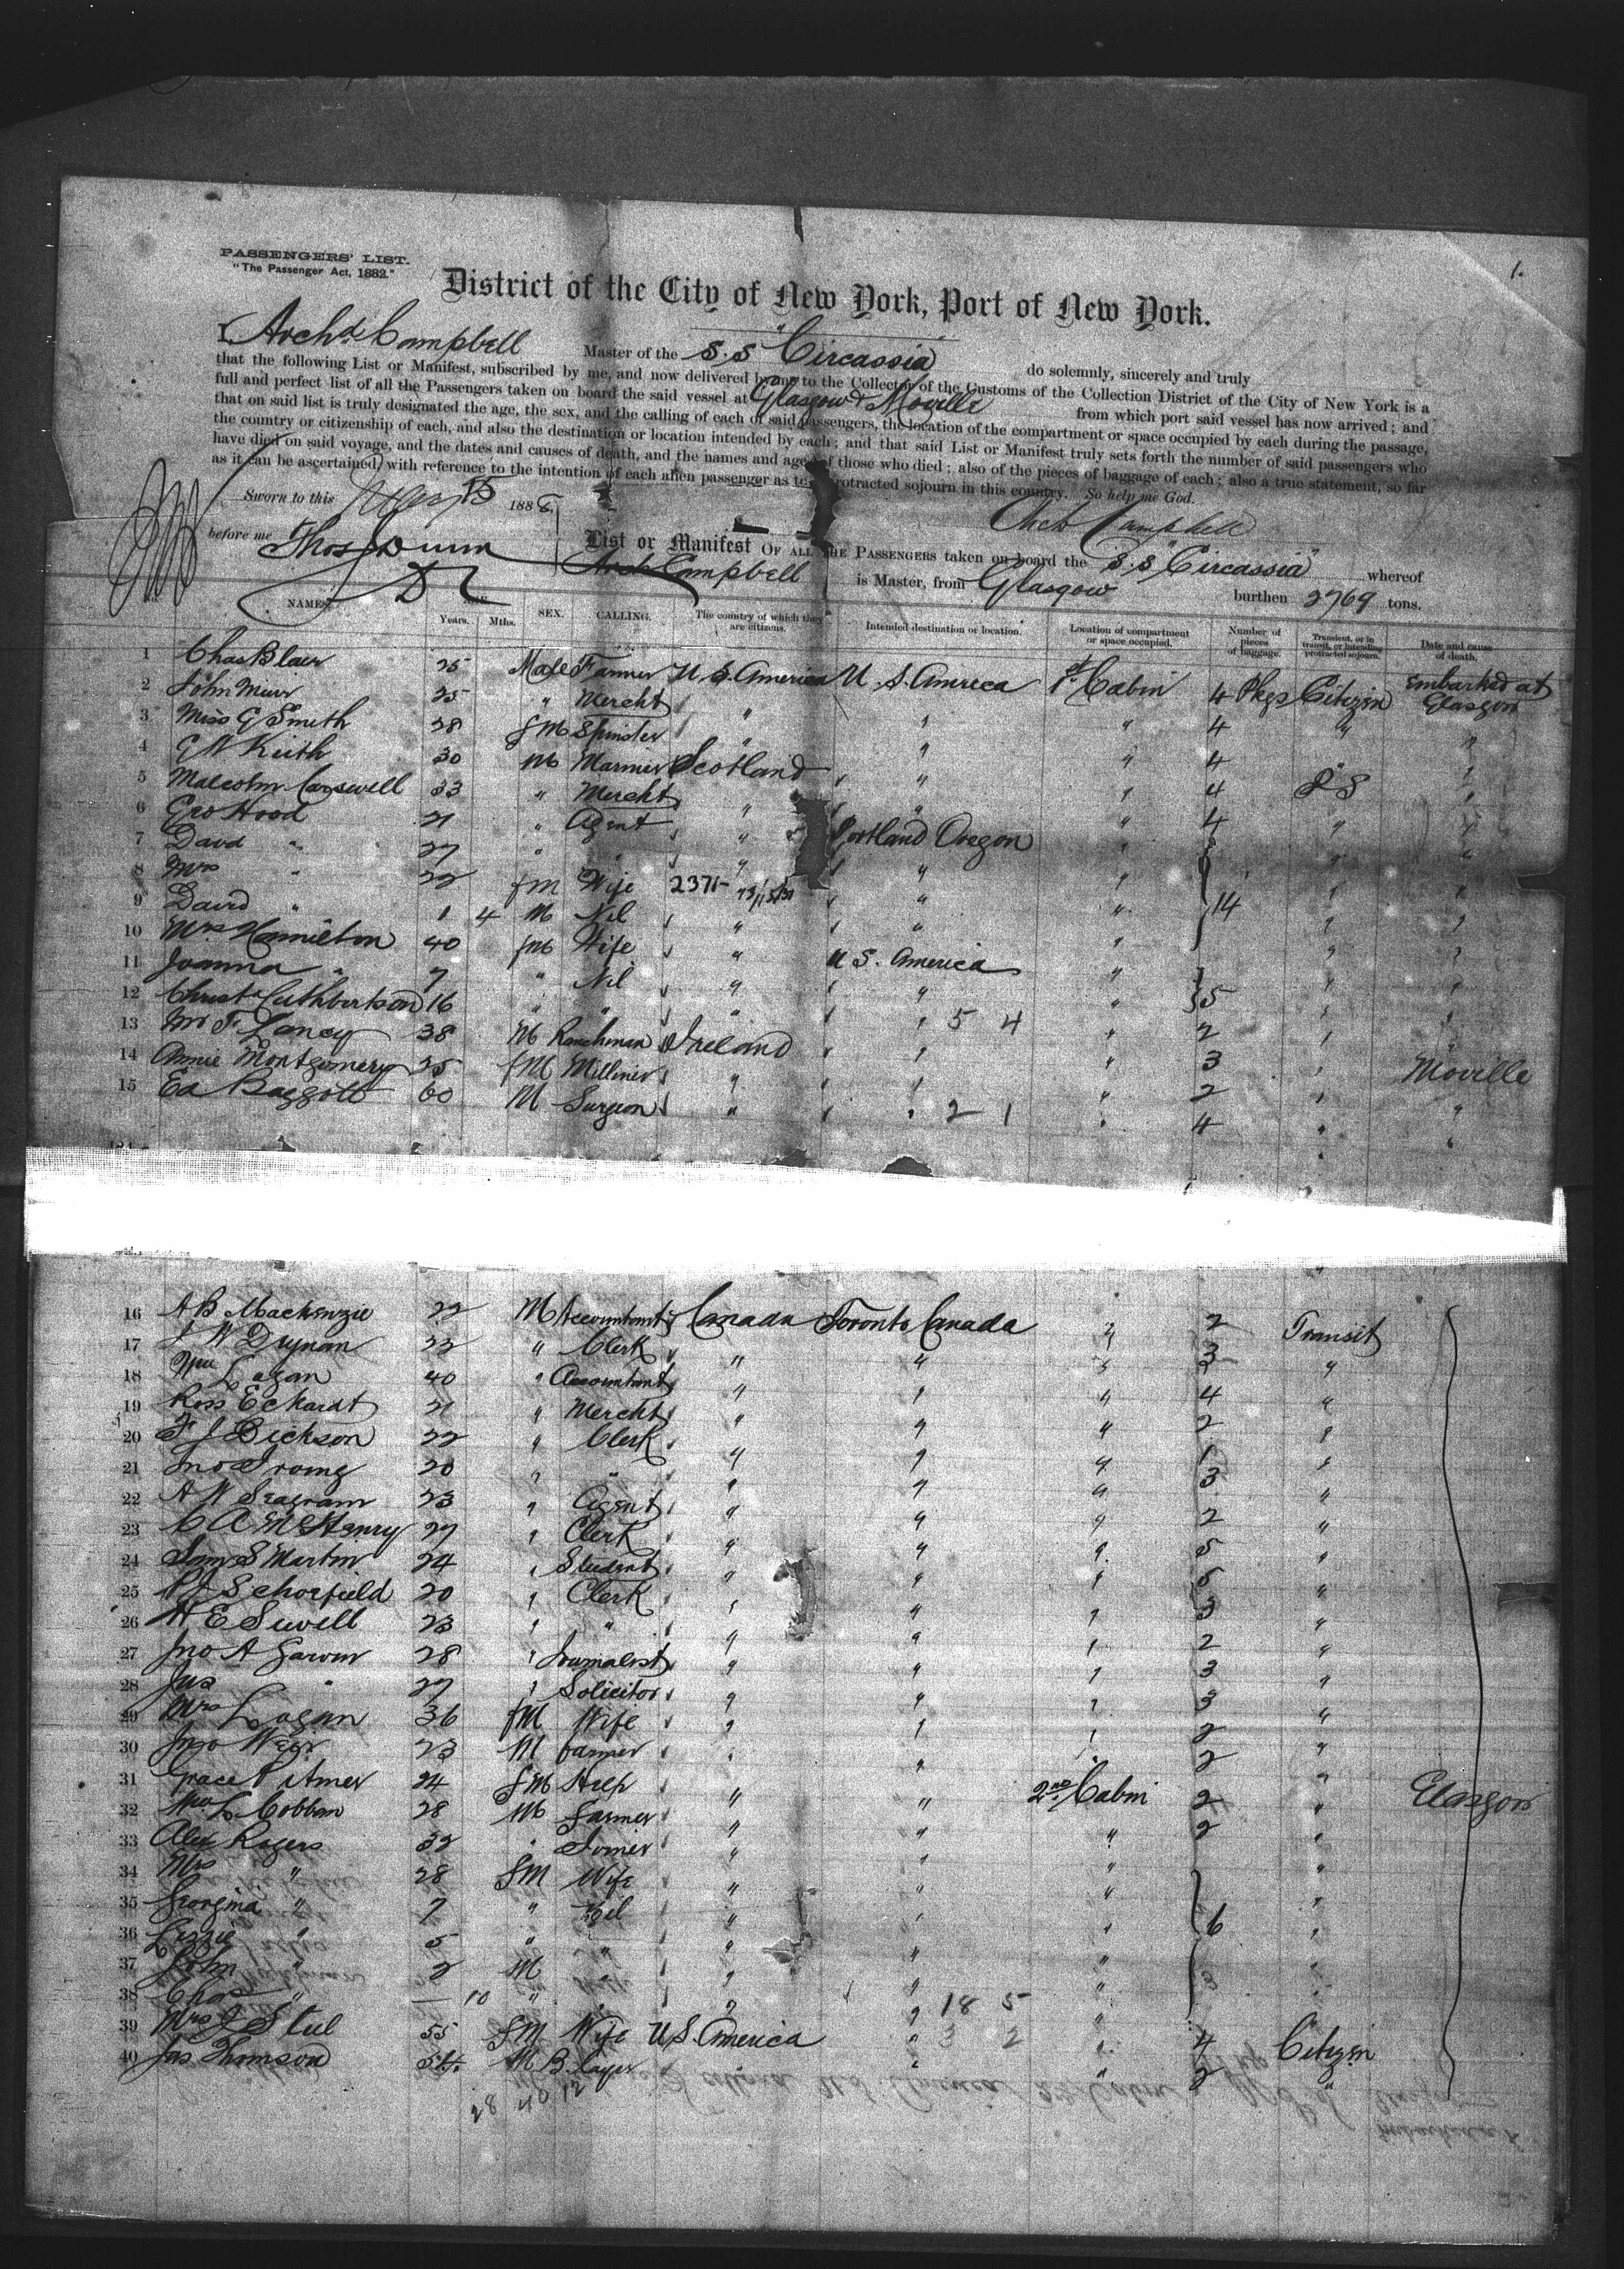 1.
PASSENGERS' LIST.
"The Passenger Act, 1882."
District of the City of New York, Port of New York.
I, Archd. Campbell Master of the S.S "Circassia do solemnly, sincerely and truly
that the following List or Manifest, subscribed by me, and now delivered by me to the Collector of the Customs of the Collection District of the City of New York is a
full and perfect list of all the Passengers taken on board the said vessel at Glasgow & Moville from which port said vessel has now arrived; and
that on said list is truly designated the age, the sex, and the calling of each of said passengers, the location of the compartment or space occupied by each during the passage,
the country or citizenship of each, and also the destination or location intended by each; and that said List or Manifest truly sets forth the number of said passengers who
have died on said voyage, and the dates and causes of death, and the names and ages of those who died; also of the pieces of baggage of each; also a true statement, so far
as it can be ascertained, with reference to the intention of each alien passenger as to protracted sojourn in this country. So help me God.
Sworn to this 15 188
before me Thos Dunn
Arch Campbell
List or Manifest OF ALL THE PASSENGERS taken on board the S.S "Circassia" whereof
Arch Campbell is Master, from Glasgow burthen 2769 tons.
No. NAMES. AGE. Years. Mths. SEX. CALLING. The country of which they are citizens. Intended destination or location. Location of compartment or space occupied. Number of pieces of baggage. Transient, or in transit, or intending protracted sojourn. Date and cause of death.
1 Chas Blair 25 Male Farmer U.S. America U.S. America 1st Cabin 4 Pkgs Citizen Embarked at Glasgow
2 John Muir 25 " Mercht " " " 4 " "
3 Miss G Smith 28 fM Spinster " " " 4 "
4 G N Keith 30 M Mariner Scotland " " 4 "
5 Malcolm Carswell 33 " Mercht " " " 4 "
6 Geo Hood 21 " Agent " Portland Oregon "
7 David " 27 " " " " "
8 Mrs " 22 fM Wife 2371- " " 14
9 David " 1 4 M Nil " " "
10 Mrs Hamilton 40 fM Wife " U.S. America "
11 Joanna " 7 " Nil " " " 5
12 Christa Cuthbertson 16 " " " " 5 4 " 2
13 Mr T Lancy 38 M Ranchman Ireland " " 3 " Moville
14 Annie Montgomery 25 fM Milliner " " " 2 " "
15 Ed Baggott 60 M Surgeon " " 2 1 " 4 " "
16 A B Mackenzie 22 M Accountant Canada Toronto Canada " 2 Transit
17 W Drynan 22 " Clerk " " " 3 "
18 Wm Logan 40 " Accountant " " " 4 "
19 Ross Eckardt 21 " Mercht " " " 2 "
20 F J Dickson 22 " Clerk " " " 1 "
21 Jno Irving 20 " " " " " 3 "
22 A W Seagram 23 " Agent " " " 2 "
23 C A McHenry 27 " Clerk " " " 5 "
24 Sam S Martin 24 " Student " " " 5 "
25 Schorfield 20 " Clerk " " " 3 "
26 H E Sewell 23 " " " " " 2 "
27 Jno A Garvin 28 " Journalist " " " 3 "
28 Jas " 27 " Solicitor " " " 3 "
29 Mrs Logan 36 fM Wife " " " 2 "
30 Jno Weir 23 M farmer " " " 2 "
31 Grace 24 fM Help " " 2nd Cabin 2 " Glasgow
32 Cobban 28 M Farmer " " " 2 "
33 Alex Rogers 32 " Joiner " " " "
34 Mrs " 28 fM Wife " " " "
35 Georgina " 7 " Nil " " " 6 "
36 Lizzie " 5 " " " " " "
37 John " 2 M " " " " "
38 Chas " — 10 " " " " 18 5 " "
39 Mrs J Steel 55 fM Wife U.S. America " 3 2 " 4 Citizen
40 Jas Thomson 54 M B.layer " " " 2 "
28 40 12